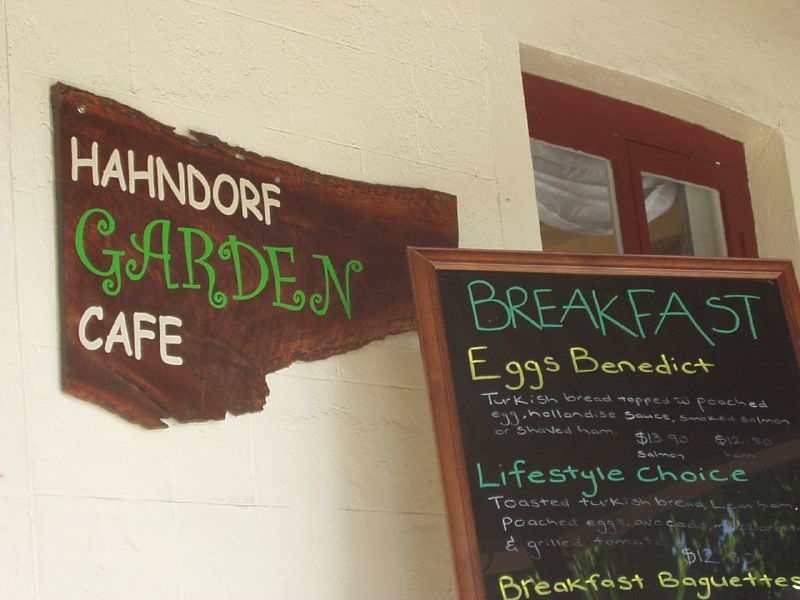 HAHNDORF
GARDEN
CAFE
BREAKFAST
Eggs Benedict
Turkish bread topped w poached
egg, hollandise sauce, smoked salmon
or shaved ham. $13.90 $12.80
salmon ham
Lifestyle Choice
Toasted turkish bread, Lean ham,
poached eggs, avocado,
& grilled tomato $12.80
Breakfast Baguettes